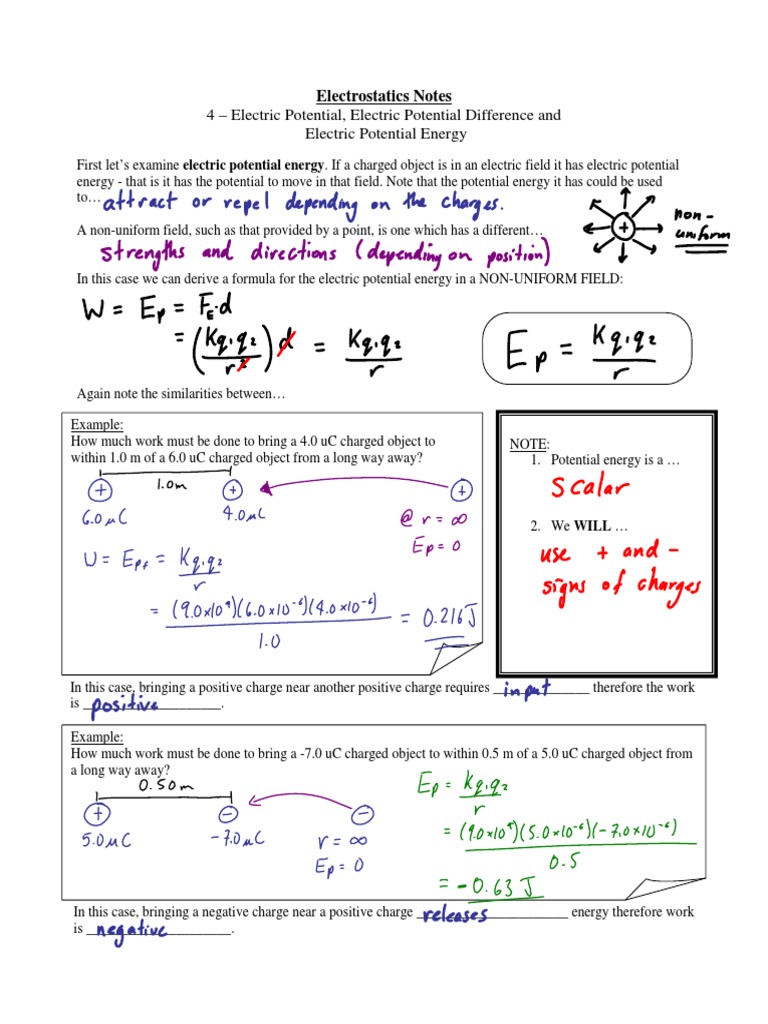 Electrostatics Notes
4 – Electric Potential, Electric Potential Difference and
Electric Potential Energy
First let's examine electric potential energy. If a charged object is in an electric field it has electric potential
energy - that is it has the potential to move in that field. Note that the potential energy it has could be used
to… attract or repel depending on the charges.
+
non-
uniform
A non-uniform field, such as that provided by a point, is one which has a different…
strengths and directions (depending on position)
In this case we can derive a formula for the electric potential energy in a NON-UNIFORM FIELD:
W = Ep = FE·d
= (Kq₁q₂/r²) d = Kq₁q₂/r
Ep = Kq₁q₂/r
Again note the similarities between…
Example:
How much work must be done to bring a 4.0 uC charged object to
within 1.0 m of a 6.0 uC charged object from a long way away?
+ 1.0m + +
6.0 μC 4.0μC @ r = ∞
Ep = 0
W = Epf = Kq₁q₂/r
= (9.0x10⁹)(6.0x10⁻⁶)(4.0x10⁻⁶)/1.0 = 0.216J
NOTE:
1. Potential energy is a …
Scalar
2. We WILL …
use + and -
signs of charges
In this case, bringing a positive charge near another positive charge requires input therefore the work
is positive.
Example:
How much work must be done to bring a -7.0 uC charged object to within 0.5 m of a 5.0 uC charged object from
a long way away?
0.50m
+ − −
5.0μC -7.0μC r = ∞
Ep = 0
Ep = Kq₁q₂/r
= (9.0x10⁹)(5.0x10⁻⁶)(-7.0x10⁻⁶)/0.5
= -0.63 J
In this case, bringing a negative charge near a positive charge releases energy therefore work
is negative.